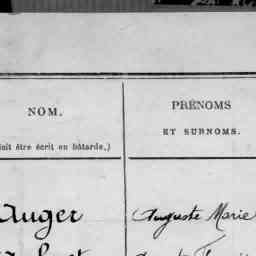 NOM.
PRÉNOMS
ET SURNOMS.
doit être écrit en bâtarde.)
Auger
Auguste Marie